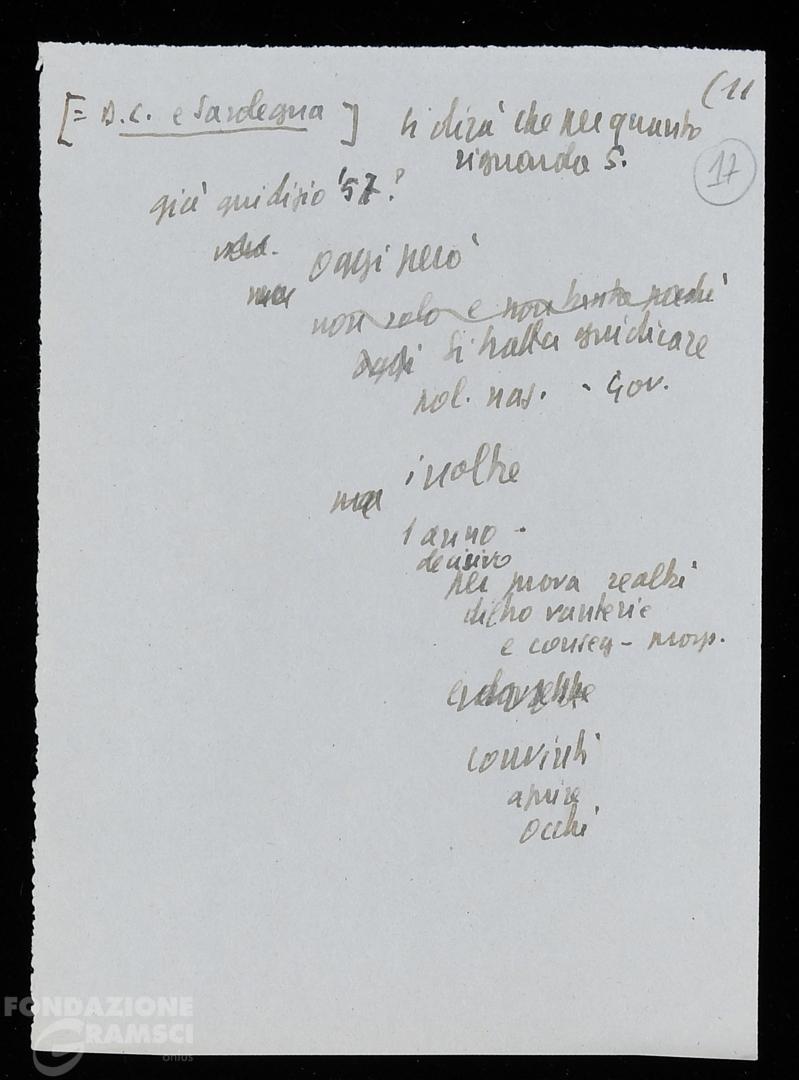 (11
[= D.C. e Sardegna] si dirà che per quanto
riguarda S.
17
già giudizio '57?
ma oggi però
non solo e non tanto perché
oggi si tratta giudicare
pol. naz. - Gov.
ma inoltre
1 anno -
decisivo
per prova realtà
dietro vanterie
e conseg -
convinti
aprire
occhi
FONDAZIONE
GRAMSCI
onlus